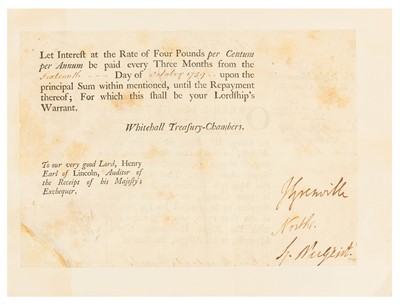 Let Intereſt at the Rate of Four Pounds per Centum
per Annum be paid every Three Months from the
Sixteenth --- Day of October 1759 -- upon the
principal Sum within mentioned, until the Repayment
thereof; For which this ſhall be your Lordſhip's
Warrant.
Whitehall Treaſury-Chambers.
To our very good Lord, Henry
Earl of Lincoln, Auditor of
the Receipt of his Majeſty's
Exchequer.
J Grenville
North.
Nugent.